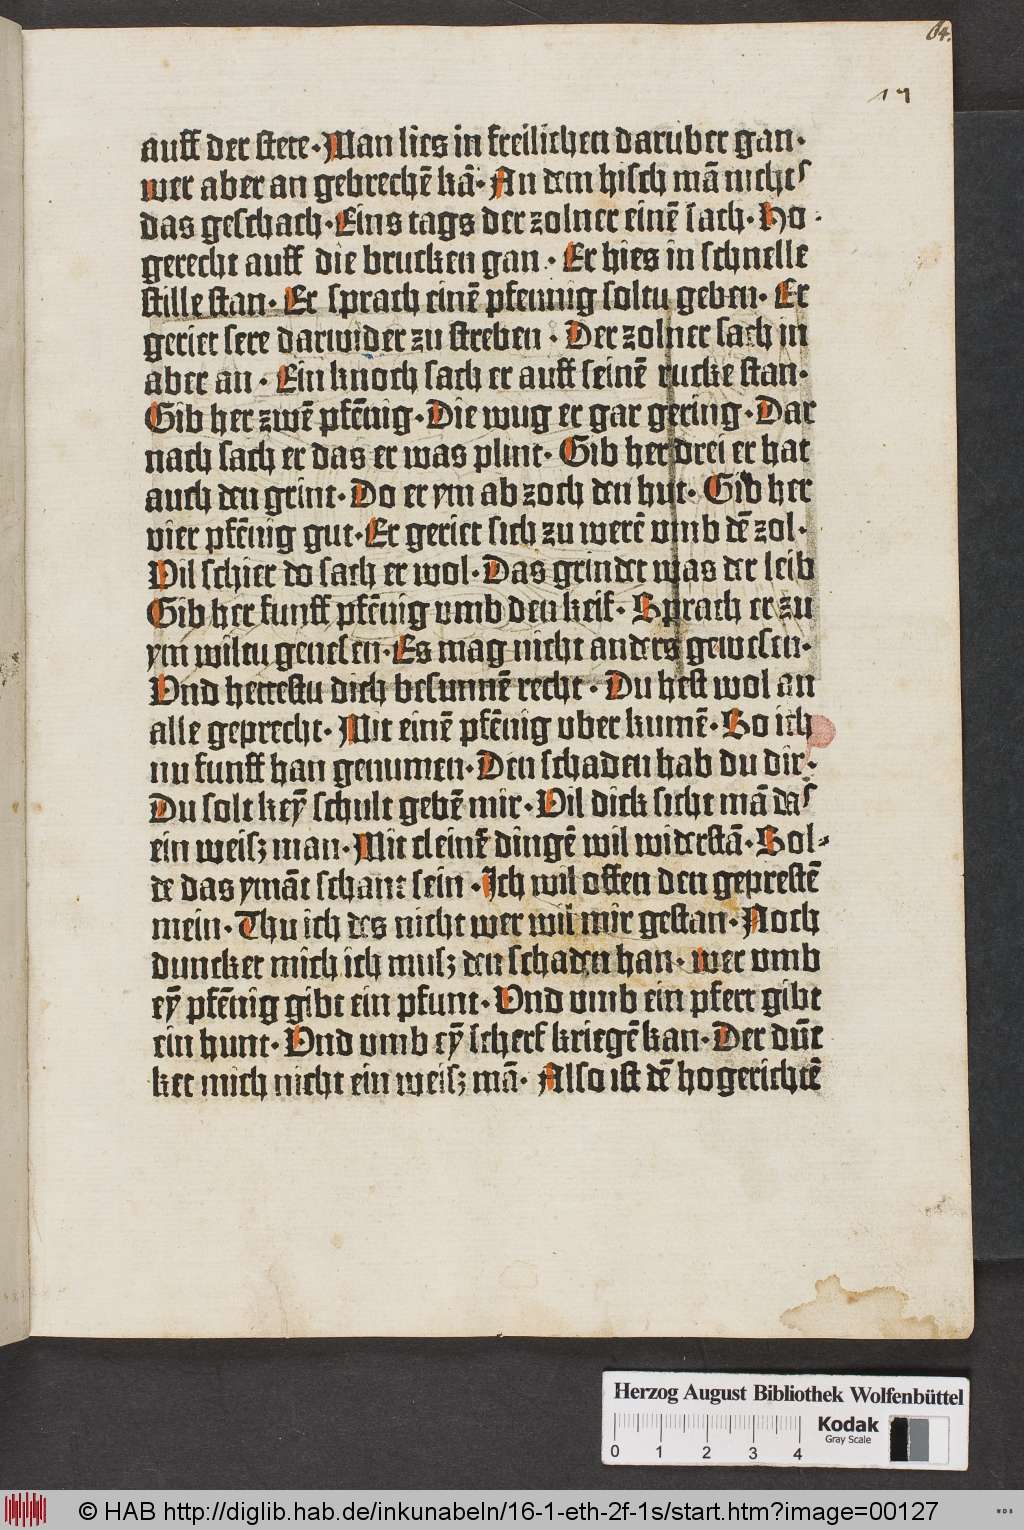 64.
17
auff der stete·Man lies in freilichen daruber gan·
wer aber an gebrechē kā·An dem hisch mā nichts
das geschach·Eins tags der zolner einē sach·Ho·
gerecht auff die brucken gan·Er hies in schnelle
stille stan·Er sprach einē pfennig soltu geben·Er
geriet sere darwider zu streben·Der zolner sach in
aber an·Ein knoch sach er auff seinē rucke stan·
Gib her zwē pfēnig·Die wug er gar gering·Dar
nach sach er das er was plint·Gib her drei er hat
auch den grint·Do er ym ab zoch den hut·Gib her
vier pfēnig gut·Er geriet sich zu werē vmb dē zol·
Vil schier do sach er wol·Das grindet was der leib
Gib her funff pfēnig vmb den keif·Sprach er zu
ym wiltu genesen·Es mag nicht anders gewesen·
Vnd hettestu dich besunnē recht·Du hest wol an
alle geprecht·Mit einē pfēnig vber kumē·So ich
nu funff han genumen·Den schaden hab du dir·
Du solt keȳ schult gebē mir·Vil dick sicht mā das
ein weisz man·Mit cleinē dingē wil widerstā·Sol⸗
de das ymāt schant sein·Ich wil offen den geprestē
mein·Thu ich des nicht wer wil mir gestan·Noch
duncket mich ich musz den schaden han·wer vmb
eȳ pfēnig gibt ein pfunt·Vnd vmb ein pfert gibt
ein hunt·Vnd vmb eȳ scherf kriegē kan·Der dūc
ket mich nicht ein weisz mā·Also ist dē hogerichtē
Herzog August Bibliothek Wolfenbüttel
0 1 2 3 4
Kodak
Gray Scale
© HAB http://diglib.hab.de/inkunabeln/16-1-eth-2f-1s/start.htm?image=00127